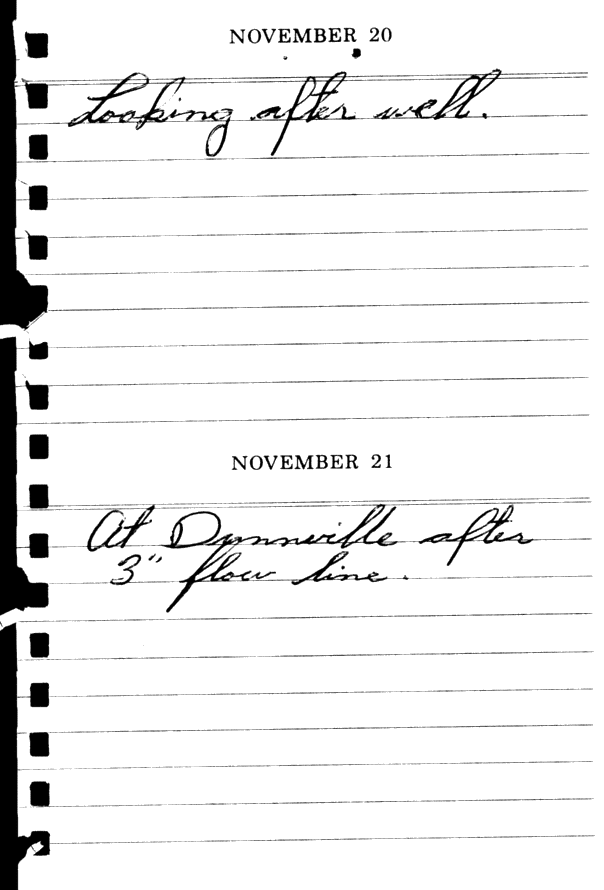 NOVEMBER 20
Looking after well.
NOVEMBER 21
At Dunnville after
3" flow line.